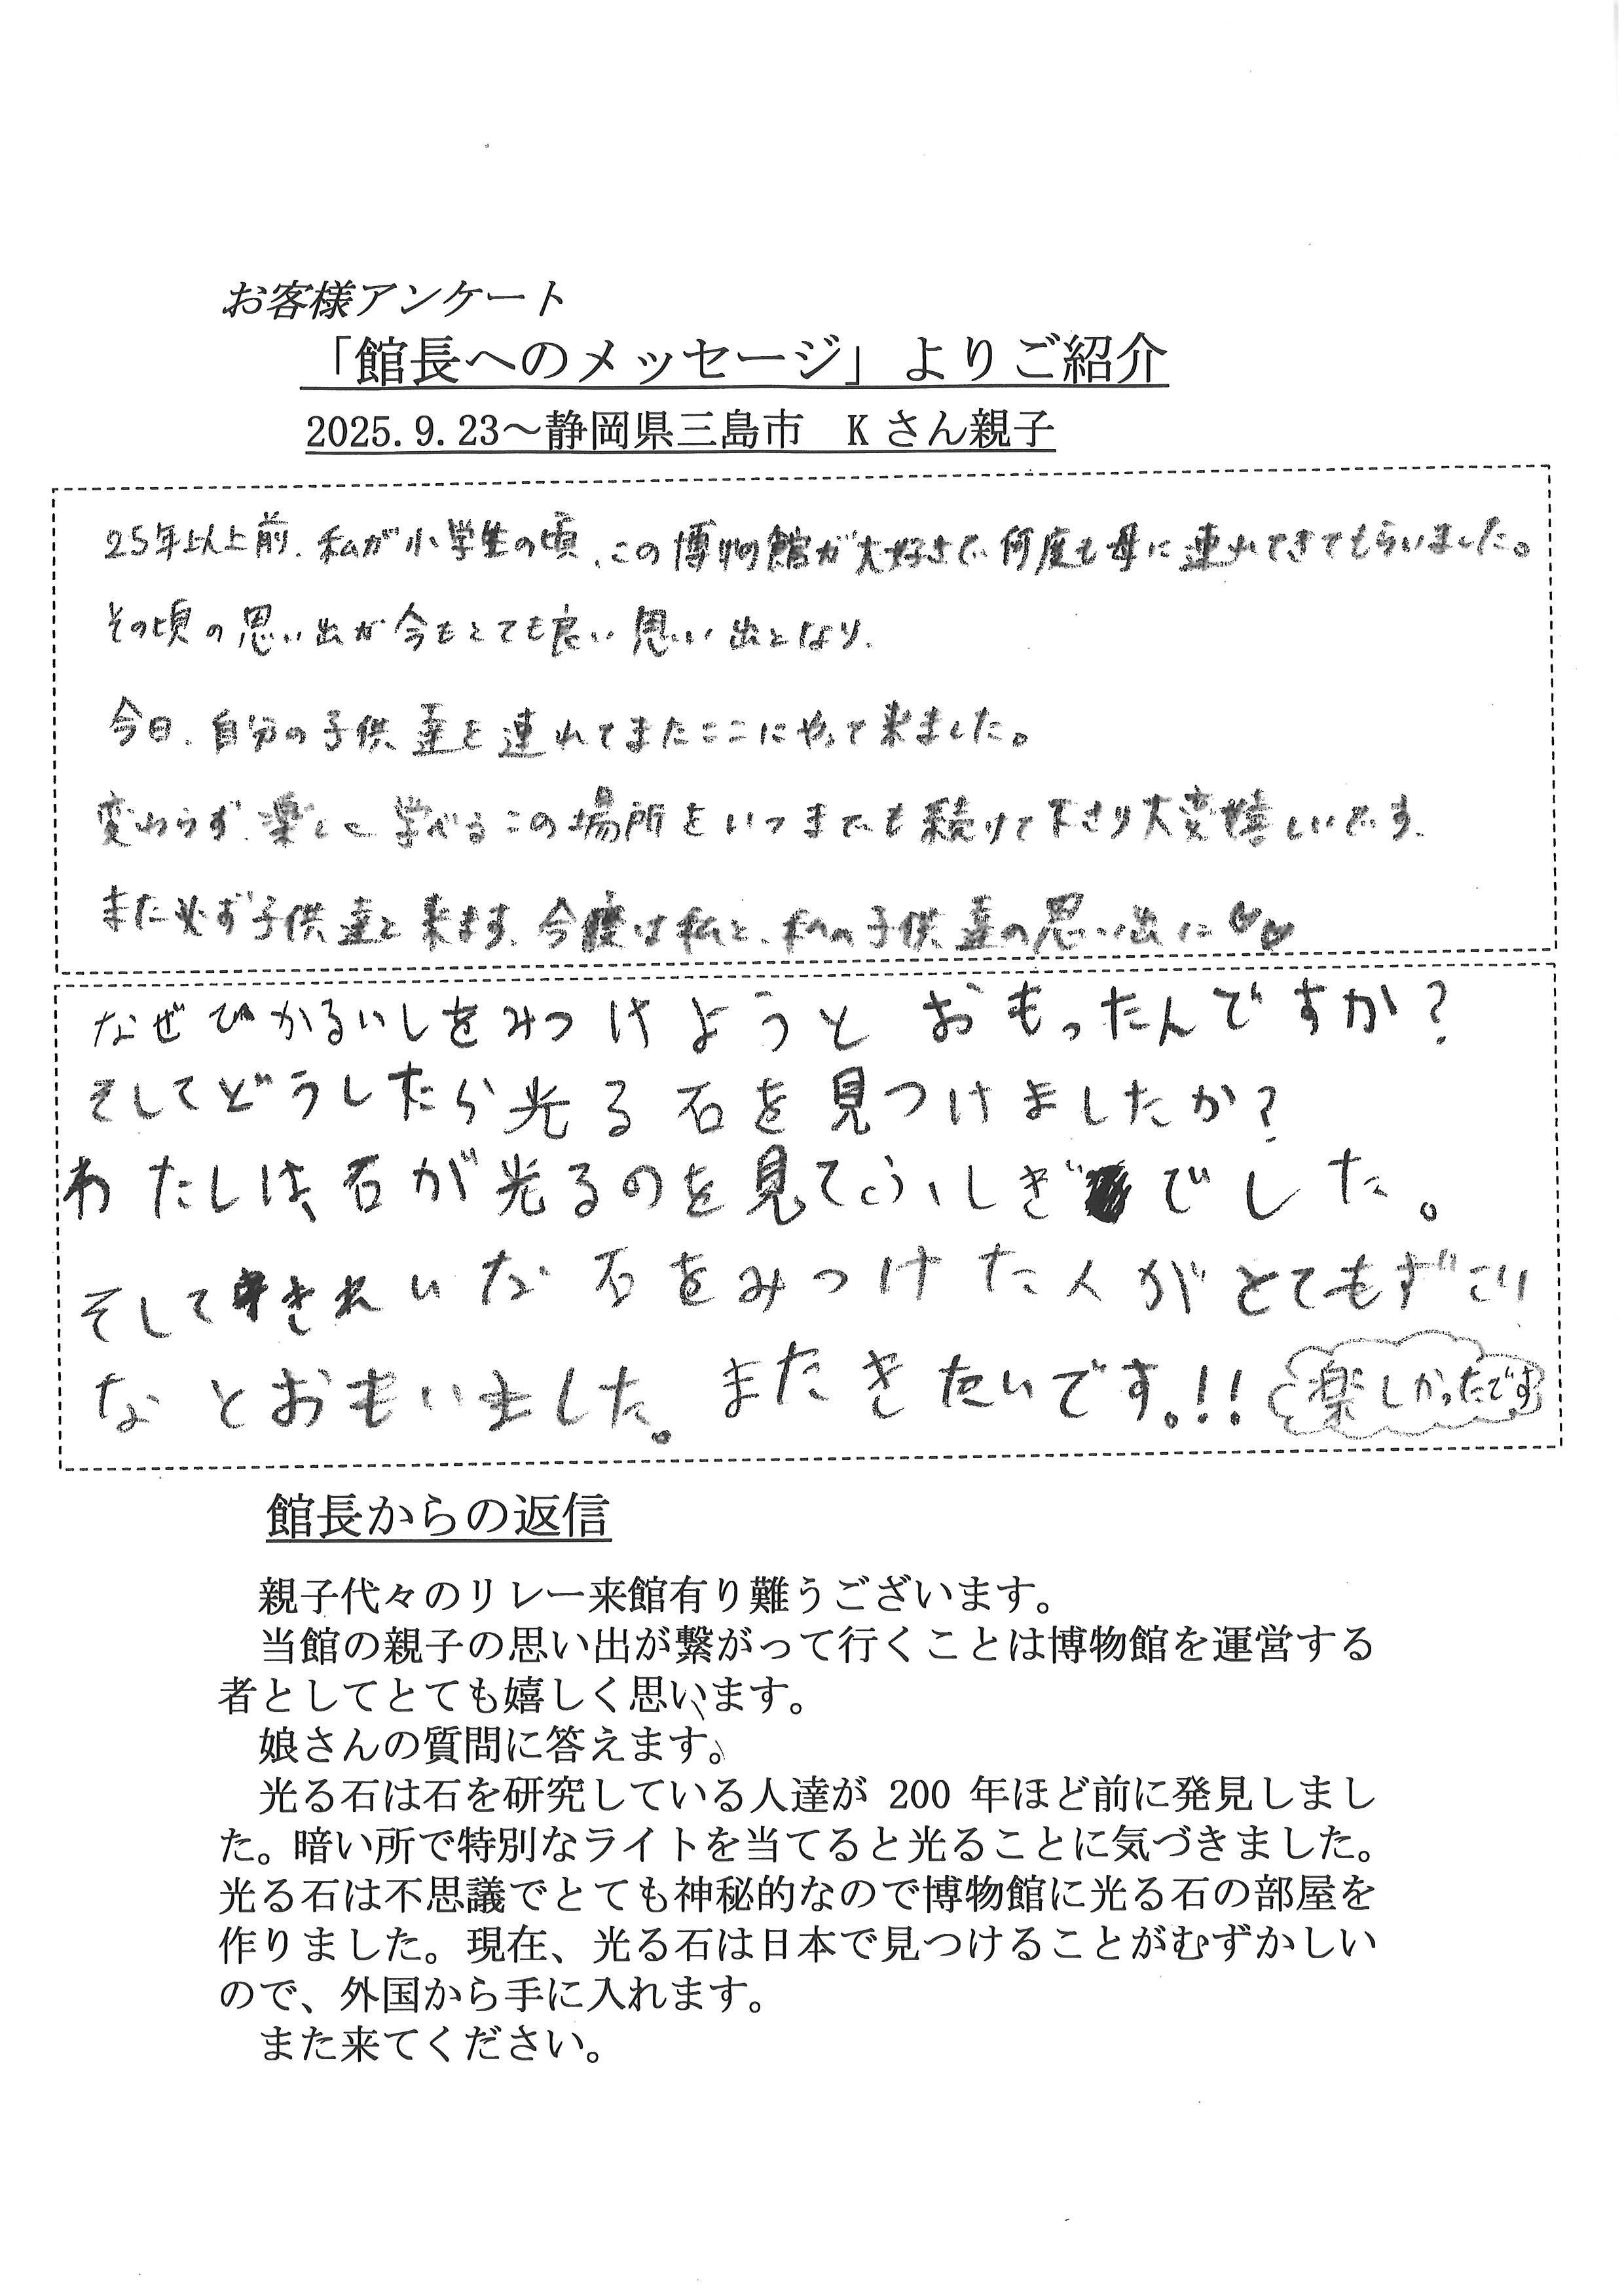 お客様アンケート
「館長へのメッセージ」よりご紹介
2025.9.23～静岡県三島市　Kさん親子
25年以上前、私が小学生の頃、この博物館が大好きで何度も母に連れてきてもらいました。
その頃の思い出が今もとても良い思い出となり、
今日、自分の子供達と連れてまたここにやって来ました。
変わらず、楽しく学べるこの場所をいつまでも続けて下さり大変嬉しいです。
また必ず子供達と来ます。今度は私と、私の子供達の思い出に♡♡
なぜひかるいしをみつけようと おもったんですか？
そしてどうしたら光る石を見つけましたか？
わたしは、石が光るのを見てふしぎでした。
そしてきれいな石をみつけた人がとてもすごい
なとおもいました。またきたいです。!! 楽しかったです
館長からの返信
親子代々のリレー来館有り難うございます。
当館の親子の思い出が繋がって行くことは博物館を運営する
者としてとても嬉しく思います。
娘さんの質問に答えます。
光る石は石を研究している人達が 200 年ほど前に発見しまし
た。暗い所で特別なライトを当てると光ることに気づきました。
光る石は不思議でとても神秘的なので博物館に光る石の部屋を
作りました。現在、光る石は日本で見つけることがむずかしい
ので、外国から手に入れます。
また来てください。